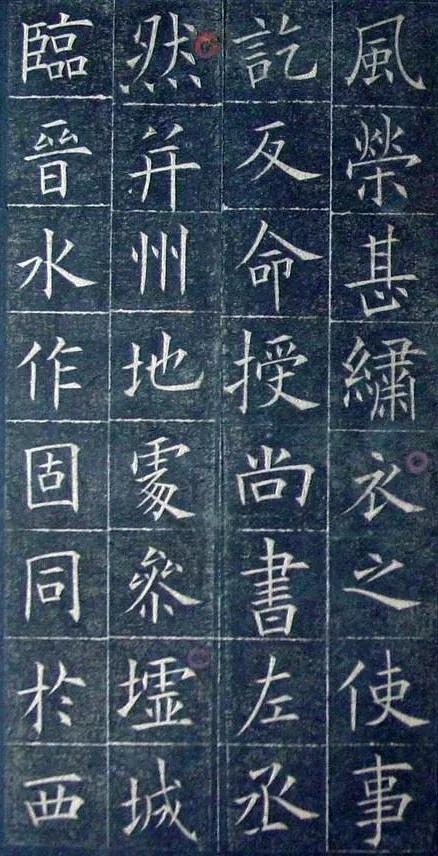 風榮甚繡衣之使事
訖反命授尚書左丞
然并州地處參墟城
臨晉水作固同於西